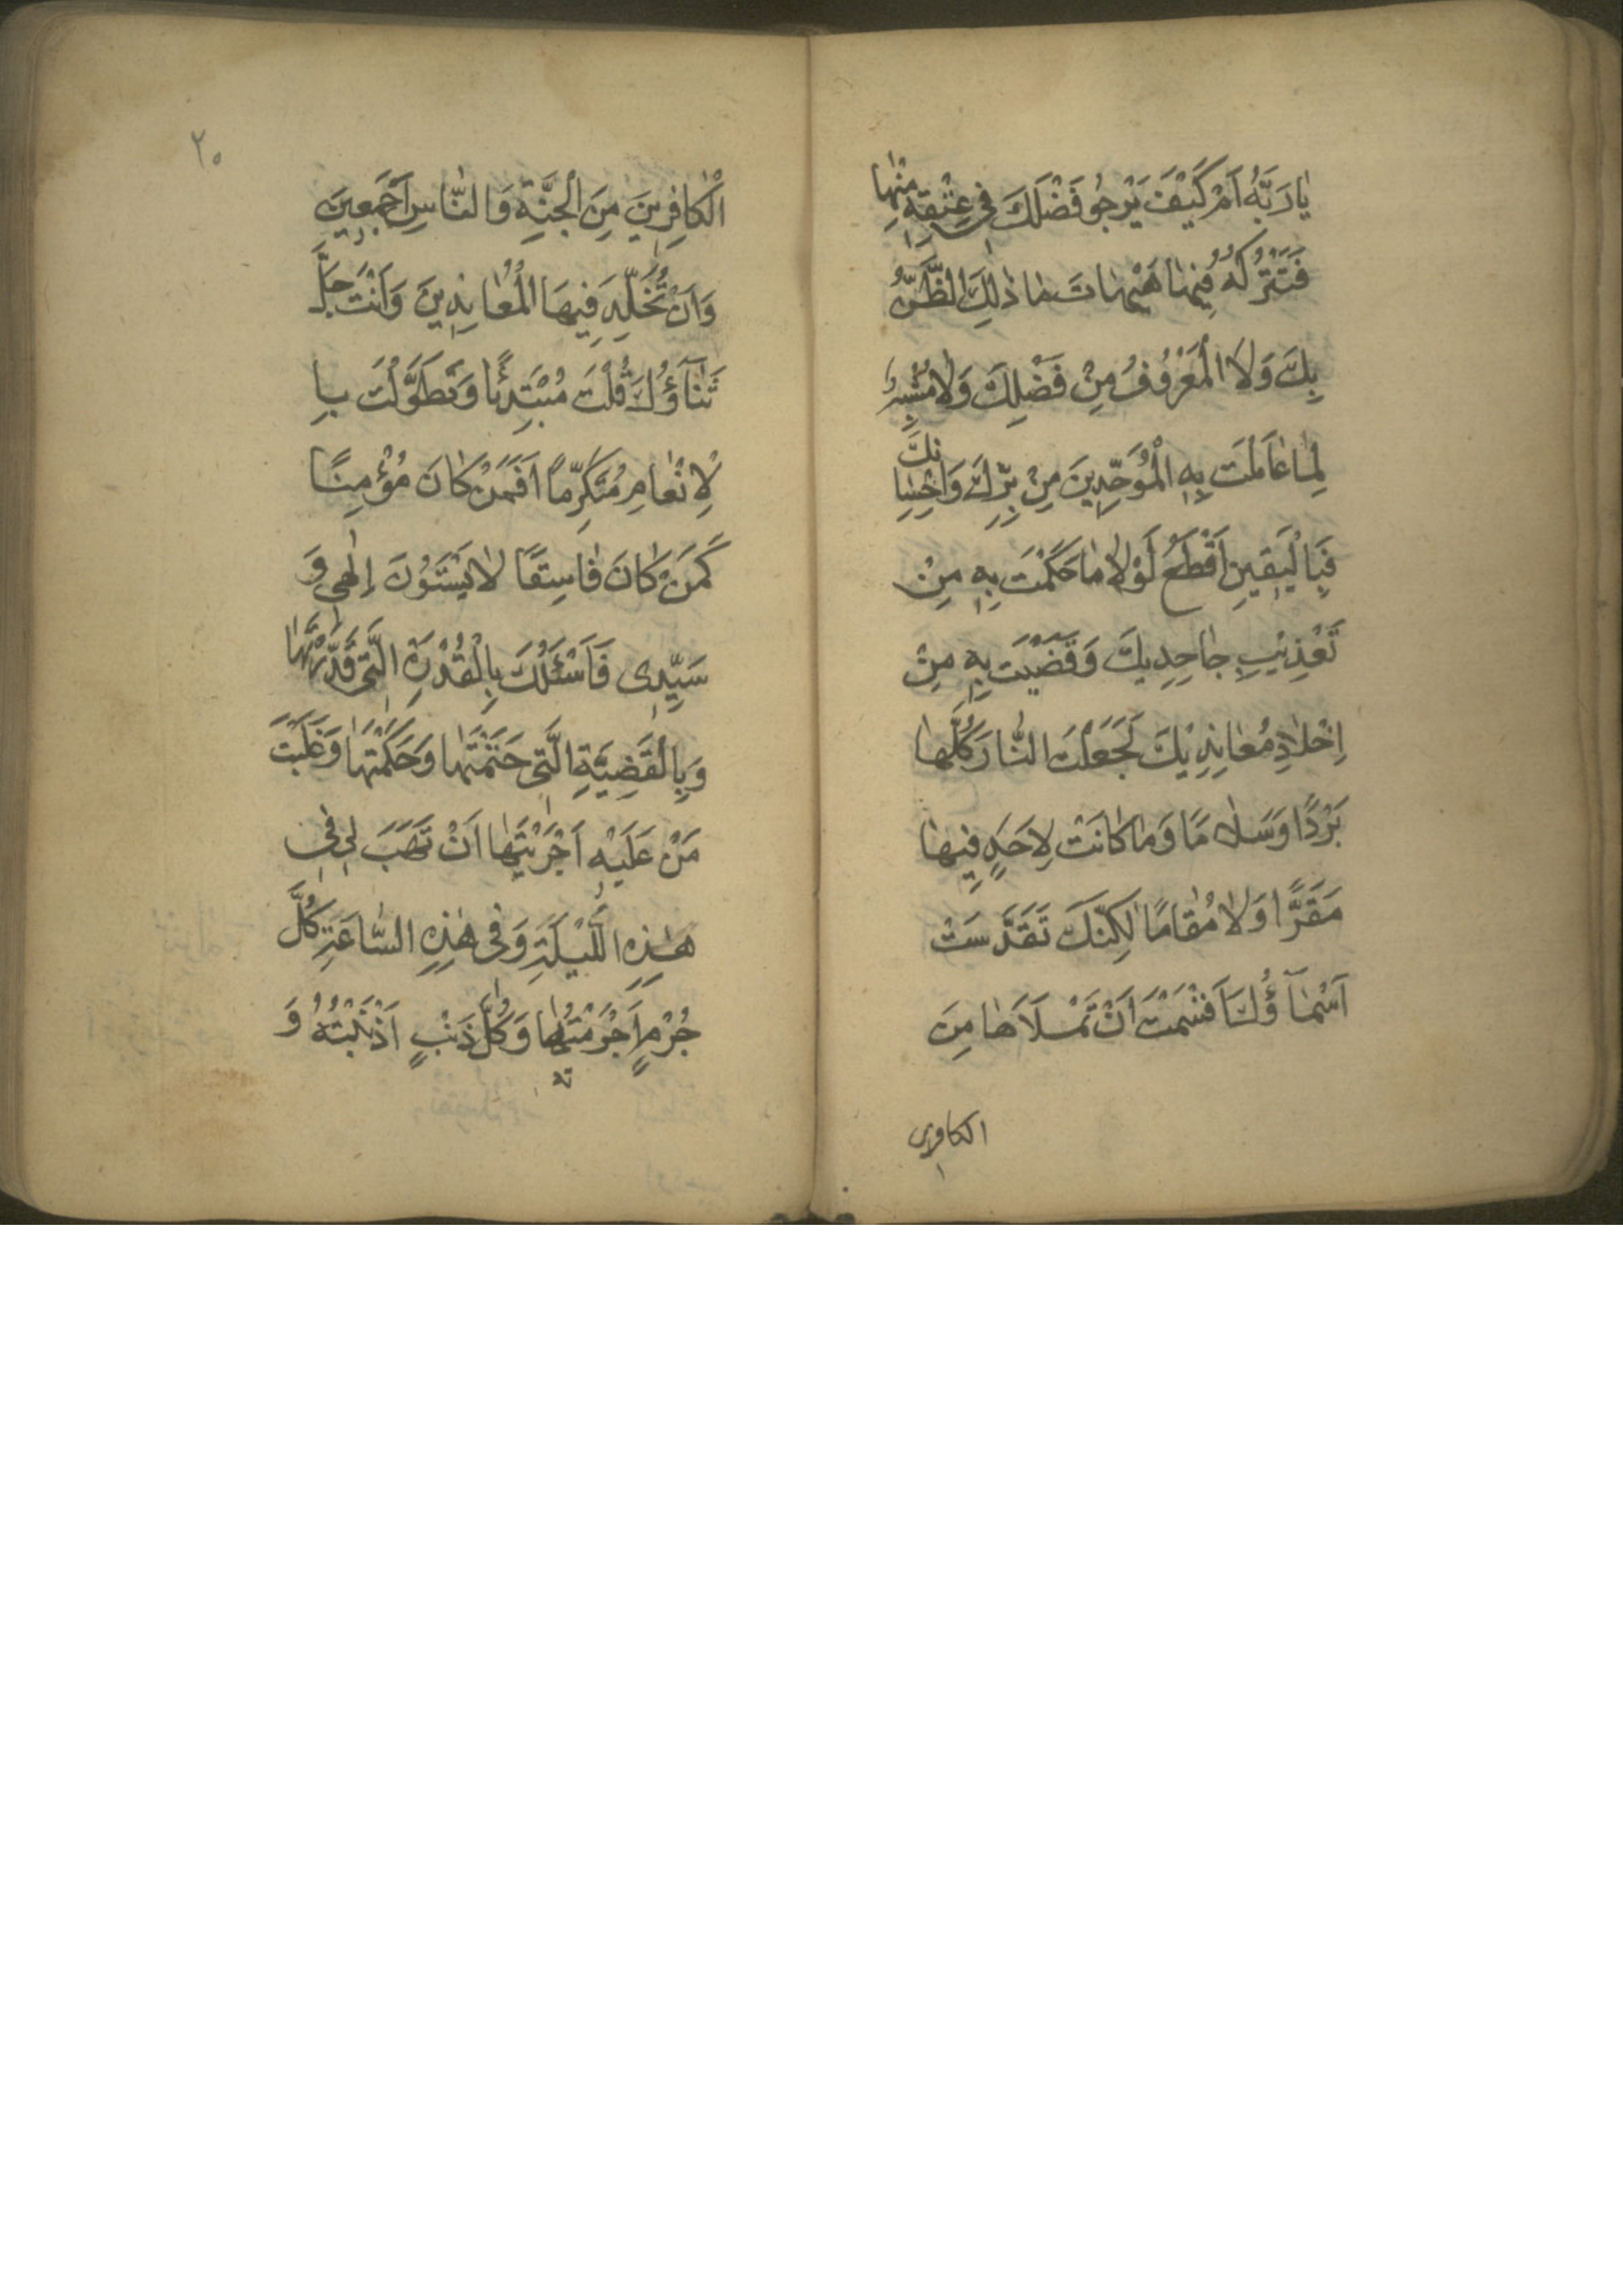 يٰا رَبَّهُ اَمْ كَيْفَ يَرْجُو فَضْلَكَ فِى عِتْقِهِ مِنْهٰا
فَتَتْرُكُهُ فِيْهٰا هَيْهٰاتَ مٰا ذٰلِكَ الظَّنُّ
بِكَ وَلَا الْمَعْرُوفُ مِنْ فَضْلِكَ وَلٰا مُشْبِهٌ
لِمٰا عٰامَلْتَ بِهِ الْمُوَحِّدِينَ مِنْ بِرِّكَ وَاِحْسٰانِكَ
فَبِالْيَقِينِ اَقْطَعُ لَوْلٰا مٰا حَكَمْتَ بِهِ مِنْ
تَعْذِيْبِ جٰاحِدِيكَ وَقَضَيْتَ بِهِ مِنْ
اِخْلٰادِ مُعٰانِدِيْكَ لَجَعَلْتَ النّٰارَ كُلَّهٰا
بَرْدًا وَسَلٰامًا وَمٰا كٰانَتْ لِاَحَدٍ فِيهٰا
مَقَرًّا وَلٰا مُقٰامًا لٰكِنَّكَ تَقَدَّسَتْ
اَسْمٰآؤُكَ اَقْسَمْتَ اَنْ تَمْلَاَهٰا مِنَ
الكافرين
٢٠
الْكٰافِرِينَ مِنَ الْجِنَّةِ وَالنّٰاسِ اَجْمَعِينَ
وَاَنْ تُخَلِّدَ فِيهَا الْمُعٰانِدِينَ وَاَنْتَ جَلَّ
ثَنٰآؤُكَ قُلْتَ مُبْتَدِئًا وَتَطَوَّلْتَ بِا
لْاِنْعٰامِ مُتَكَرِّمًا اَفَمَنْ كٰانَ مُؤْمِنًا
كَمَنْ كٰانَ فٰاسِقًا لٰا يَسْتَوُنَ اِلٰهِى وَ
سَيِّدِى فَاَسْئَلُكَ بِالْقُدْرَةِ الَّتِى قَدَّرْتَهٰا
وَبِالْقَضِيَّةِ الَّتِى حَتَمْتَهٰا وَحَكَمْتَهٰا وَغَلَبْتَ
مَنْ عَلَيْهِ اَجْرَيْتَهٰا اَنْ تَهَبَ لِى فِى
هٰذِهِ اللَّيْلَةِ وَفِى هٰذِهِ السّٰاعَةِ كُلَّ
جُرْمٍ اَجْرَمْتُهٰا وَكُلَّ ذَنْبٍ اَذْنَبْتُهُ وَ